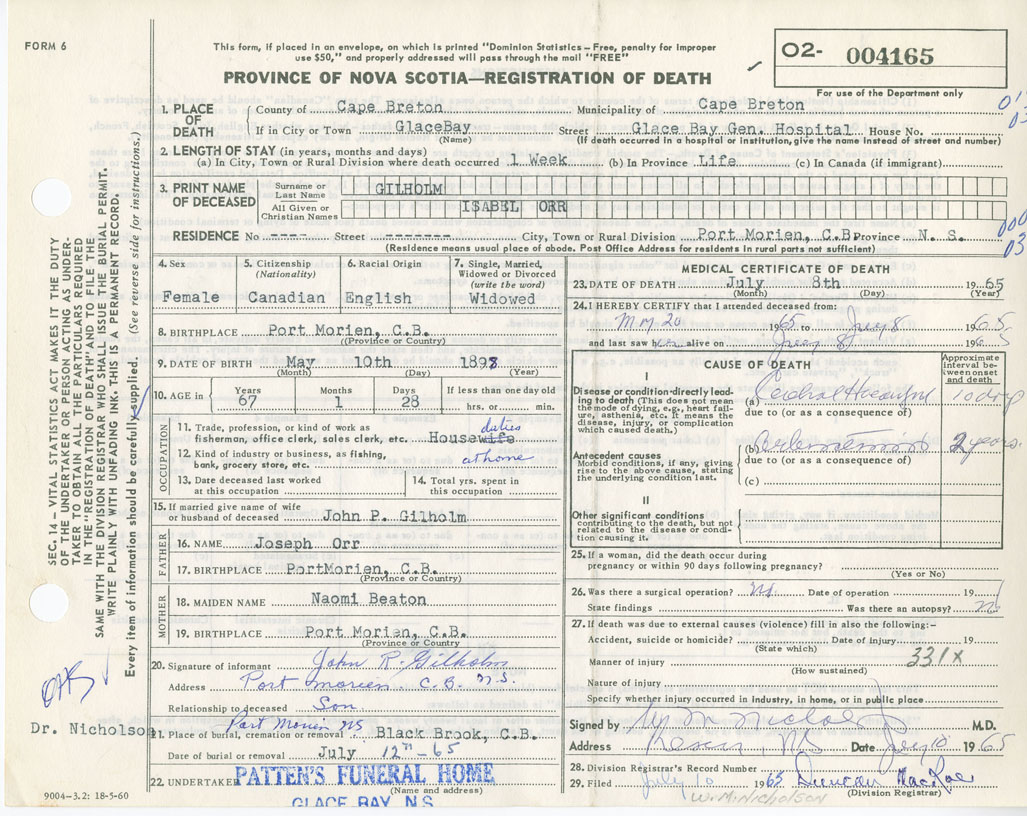 FORM 6
This form, if placed in an envelope, on which is printed "Dominion Statistics—Free, penalty for improper
use $50," and properly addressed will pass through the mail "FREE"
PROVINCE OF NOVA SCOTIA—REGISTRATION OF DEATH
O2- 004165
For use of the Department only
1. PLACE OF DEATH
County of Cape Breton Municipality of Cape Breton
If in City or Town GlaceBay Street Glace Bay Gen. Hospital House No.
(Name) (If death occurred in a hospital or institution, give the name instead of street and number)
2. LENGTH OF STAY (in years, months and days)
(a) In City, Town or Rural Division where death occurred 1 Week (b) In Province Life (c) In Canada (if immigrant)
3. PRINT NAME OF DECEASED
Surname or Last Name GILHOLM
All Given or Christian Names ISABEL ORR
RESIDENCE No ---- Street ------- City, Town or Rural Division Port Morien, C.B. Province N. S.
(Residence means usual place of abode. Post Office Address for residents in rural parts not sufficient)
4. Sex
Female
5. Citizenship (Nationality)
Canadian
6. Racial Origin
English
7. Single, Married, Widowed or Divorced (write the word)
Widowed
8. BIRTHPLACE Port Morien, C.B.
((Province or Country)
9. DATE OF BIRTH May 10th 1898
(Month) (Day) (Year)
10. AGE in Years 67 Months 1 Days 28 If less than one day old hrs. or min.
OCCUPATION
11. Trade, profession, or kind of work as fisherman, office clerk, sales clerk, etc. Housewife duties
12. Kind of industry or business, as fishing, bank, grocery store, etc. at home
13. Date deceased last worked at this occupation
14. Total yrs. spent in this occupation
15. If married give name of wife or husband of deceased John P. Gilholm
FATHER
16. NAME Joseph Orr
17. BIRTHPLACE PortMorien, C.B.
(Province or Country)
MOTHER
18. MAIDEN NAME Naomi Beaton
19. BIRTHPLACE Port Morien, C.B.
(Province or Country)
20. Signature of informant John R. Gilholm
Address Port Morien. C.B. N.S.
Relationship to deceased Son
Port Morien NS
21. Place of burial, cremation or removal Black Brook, C.B.
Date of burial or removal July 12th - 65
22. UNDERTAKER PATTEN'S FUNERAL HOME
(Name and address)
GLACE BAY, N.S.
9004-3.2: 18-5-60
MEDICAL CERTIFICATE OF DEATH
23. DATE OF DEATH July 8th 1965
(Month) (Day) (Year)
24. I HEREBY CERTIFY that I attended deceased from:
May 20 1965 to July 8 1965
and last saw her alive on July 8 1965
CAUSE OF DEATH
Approximate interval between onset and death
I
Disease or condition directly leading to death (This does not mean the mode of dying, e.g., heart failure, asthenia, etc. It means the disease, injury, or complication which caused death.)
(a) Cerebral 10 days
due to (or as a consequence of)
Antecedent causes
Morbid conditions, if any, giving rise to the above cause, stating the underlying condition last.
(b) 2 years
due to (or as a consequence of)
(c)
II
Other significant conditions contributing to the death, but not related to the disease or condition causing it.
25. If a woman, did the death occur during pregnancy or within 90 days following pregnancy?
(Yes or No)
26. Was there a surgical operation? No Date of operation 19
State findings Was there an autopsy? No
27. If death was due to external causes (violence) fill in also the following:-
Accident, suicide or homicide? Date of Injury 19
(State which)
331X
Manner of injury
(How sustained)
Nature of injury
Specify whether injury occurred in industry, in home, or in public place
Signed by M.D.
Address NS Date July 10 1965
28. Division Registrar's Record Number
29. Filed July 10 1965 Duncan MacRae
(Division Registrar)
W. M. NICHOLSON
SEC. 14—VITAL STATISTICS ACT MAKES IT THE DUTY
OF THE UNDERTAKER OR PERSON ACTING AS UNDER-
TAKER TO OBTAIN ALL THE PARTICULARS REQUIRED
IN THE "REGISTRATION OF DEATH" AND TO FILE THE
SAME WITH THE DIVISION REGISTRAR WHO SHALL ISSUE THE BURIAL PERMIT.
WRITE PLAINLY WITH UNFADING INK. THIS IS A PERMANENT RECORD.
Every item of information should be carefully supplied. (See reverse side for instructions.)
Dr. Nicholson